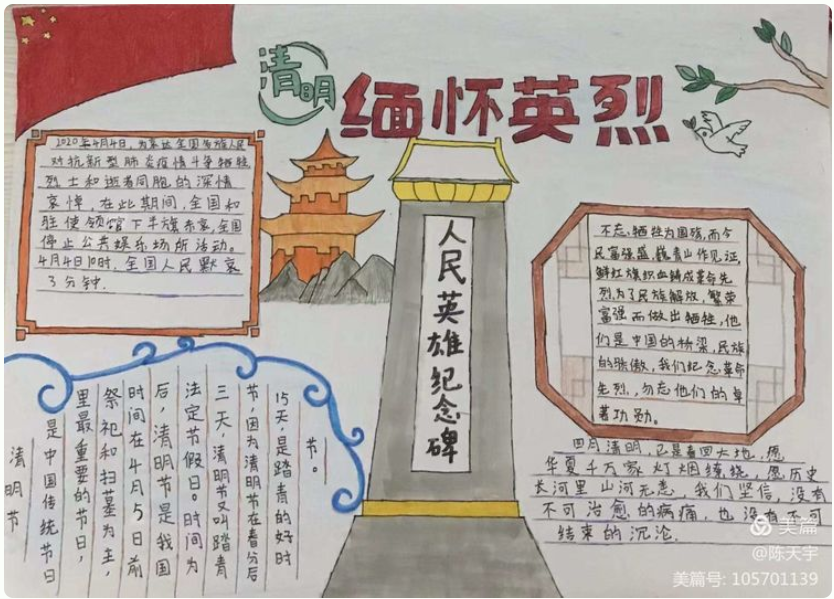 清明
缅怀英烈
2020年4月4日,为表达全国各族人民
对抗新型肺炎疫情斗争牺牲
烈士和逝者同胞的深情
哀悼,在此期间,全国和
驻使领馆下半旗志哀,全国
停止公共娱乐场所活动。
4月4日10时,全国人民默哀
3分钟.
人民英雄纪念碑
不忘:牺牲为国殇,而今
民富强盛,巍青山作见证,
鲜红旗帜血铸成革命先
烈为了民族解放,繁荣
富强而做出牺牲,他
们是中国的桥梁,民族
的骄傲,我们纪念革命
先烈,勿忘他们的卓
著功勋。
四月清明,已是春回大地,愿
华夏千万家灯烟缭绕,愿历史
长河里山河无恙,我们坚信,没有
不可治愈的病痛,也没有不可
结束的沉沦.
清明节
是中国传统节日
里最重要的节日,
祭祀和扫墓为主,
时间在4月5日前
后,清明节是我国
法定节假日。时间为
三天,清明节又叫踏青
节,因为清明节在春分后
15天,是踏青的好时
节。
美篇
@陈天宇
美篇号: 105701139